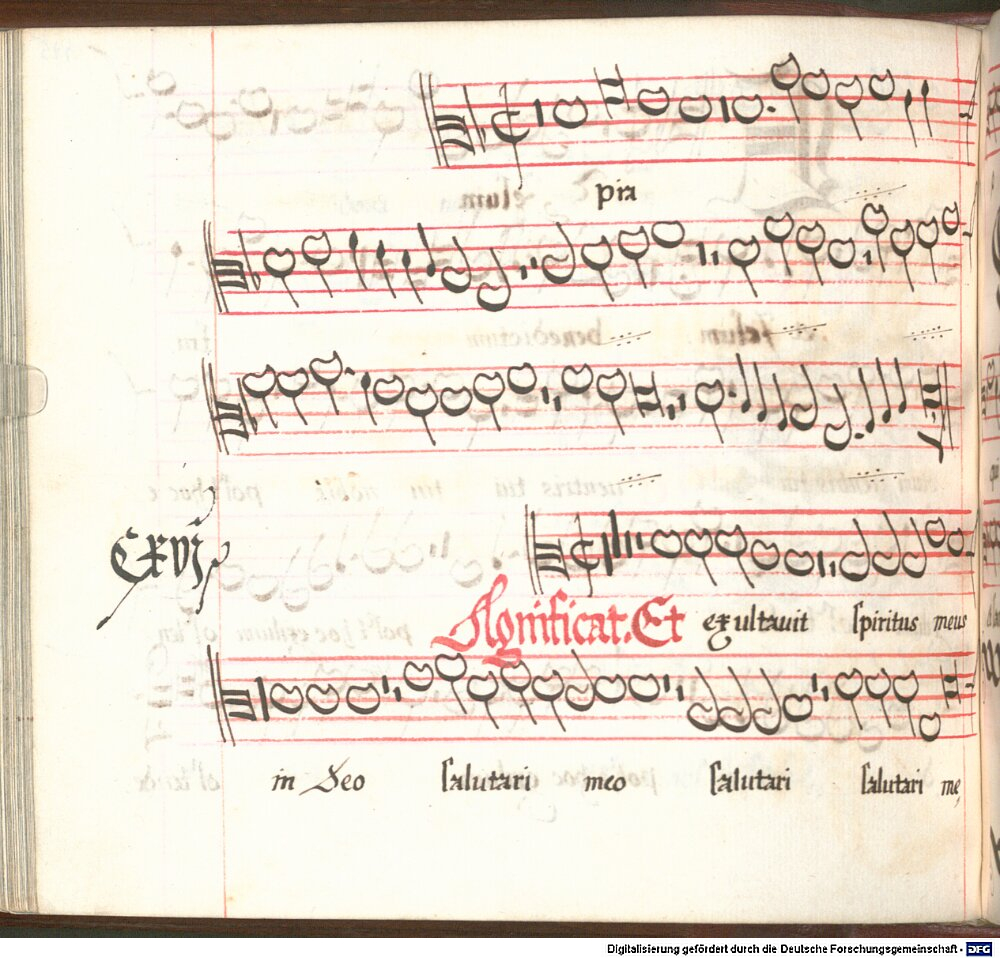 pia
CXVJ
Agnificat. Et exultauit spiritus meus
in Deo salutari meo salutari salutari me
Digitalisierung gefördert durch die Deutsche Forschungsgemeinschaft - DFG